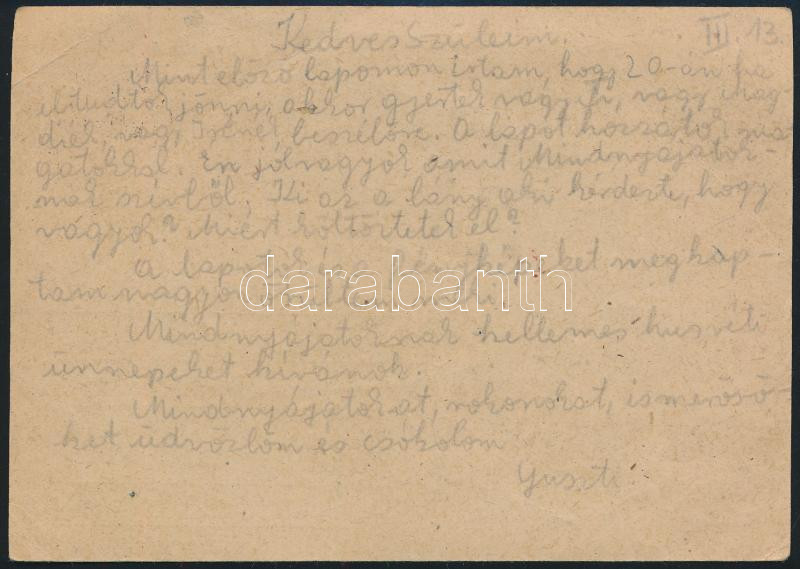 Kedves Szüleim. III. 13.
Mint előző lapomon írtam, hogy 20-án ha
el tudtok jönni, akkor gyertek vagy ti, vagy
vagy beszélőre. A lapot hozzátok
gatokkal. Én jól vagyok amit Mindnyájatok-
nak szívből. Ki az a lány aki kérdezte, hogy
vagyok? Miért költöztetek el?
A lapot és a fényképeket megkap-
tam nagyon örültem neki.
darabanth
Mindnyájatoknak kellemes husvéti
ünnepeket kívánok.
Mindnyájatokat, rokonokat, ismerősö-
ket üdvözlöm és csókolom
Guszti